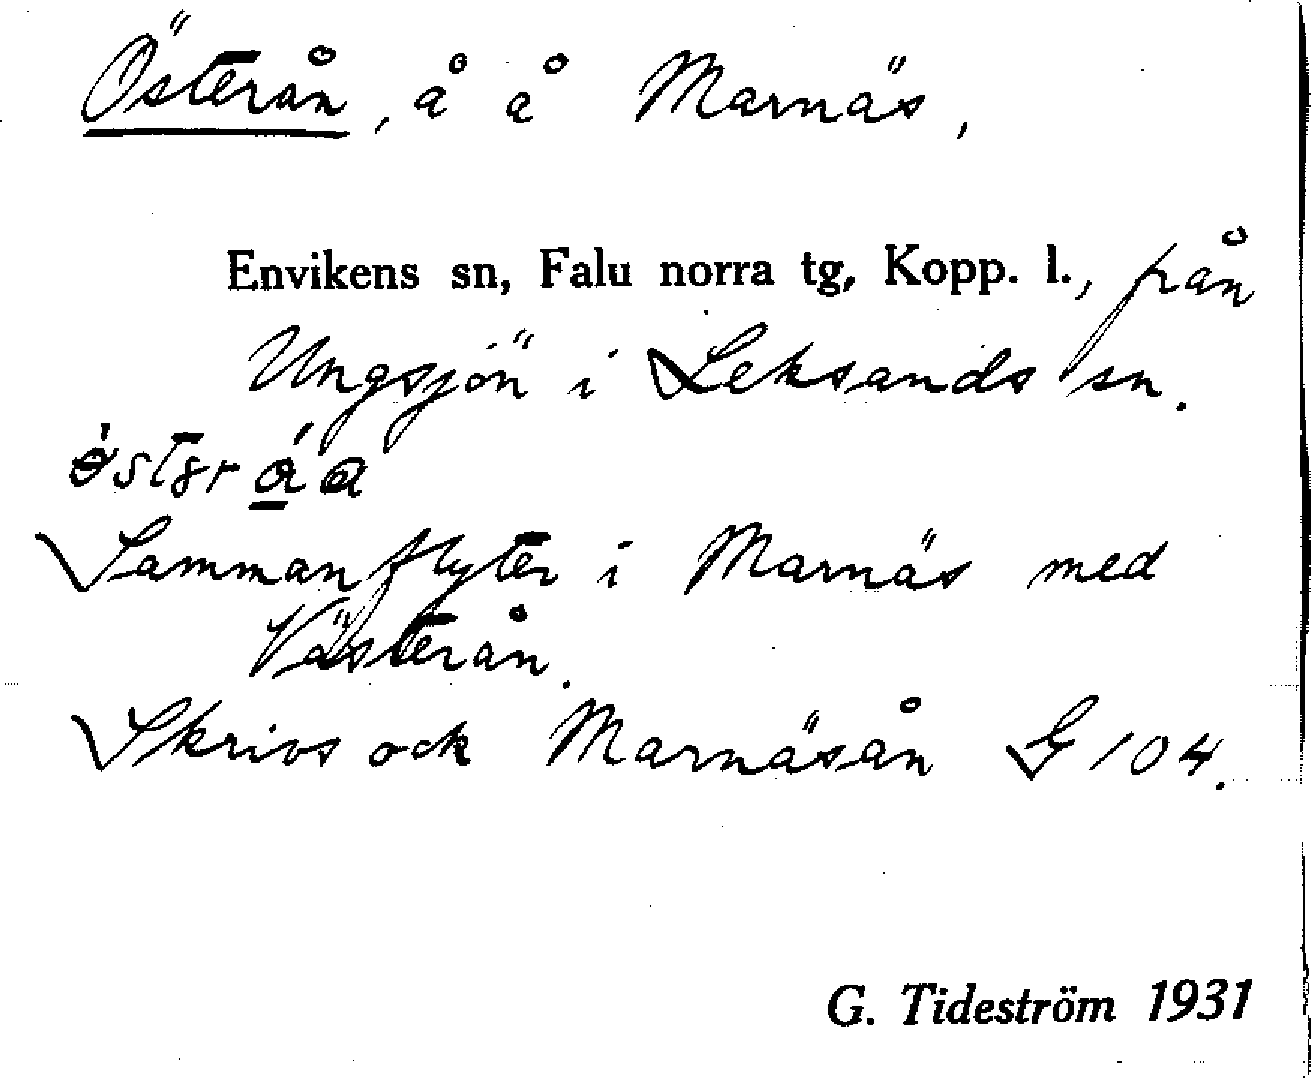 Österån, å å Marnäs,
Envikens sn, Falu norra tg, Kopp. l., från
Ungsjön i Leksands sn.
Sammanflyter i Marnäs med
Västerån.
Skrivs ock Marnäsån G 104.
G. Tideström 1931